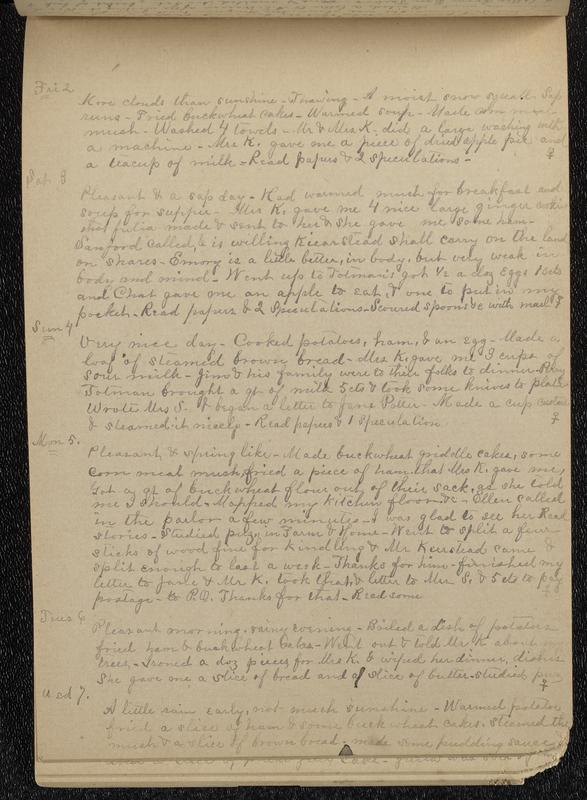 Fri 2
More clouds than sunshine - Thawing - A moist snow squall - Sap
runs - Fried buckwheat cakes - Warmed soup - Made corn meal
mush - Washed 4 towels - Mr & Mrs K. did a large washing with
a machine - Mrs K. gave me a piece of dried apple pie and
a teacup of milk - Read papers & 2 speculations -
Sat 3
Pleasant & a sap day - Had warmed mush for breakfast and
soup for supper - Mrs K. gave me 4 nice large ginger cookies
that Julia made & sent to her & she gave me some ham -
Sanford called, & is willing Kiearstead shall carry on the land
on shares - Emory is a little better, in body, but very weak in
body and mind - Went up to Totman's got ½ a doz eggs
and Chat gave me an apple to eat, & one to put in my
pocket - Read papers & 2 Speculations - Scoured spoons &c with
Sun 4
Very nice day - Cooked potatoes, ham, & an egg - Made a
loaf of steamed brown bread - Mrs K. gave me 3 cups of
sour milk - Jim & his family were to their folks to dinner -
Totman brought a qt of milk 5 cts & took some knives to plate
Wrote Mrs S. & began a letter to Jane Potter - Made a cup custard
& steamed it nicely - Read papers & 1 speculation
Mon 5.
Pleasant & spring like - Made buckwheat griddle cakes, some
corn meal mush, fried a piece of ham that Mrs K. gave me,
Got a qt of buckwheat flour out of their sack, as she told
me I should - Mopped my kitchen floor &c - Ellen called
in the parlor a few minutes - I was glad to see her Read
stories - Studied puz. in Farm & Home - Went to split a few
sticks of wood fine for kindling & Mr Kierstead came &
split enough to last a week - Thanks for him - finished my
letter to Jane & Mr K. took that & letter to Mrs S. & 5 cts to pay
postage - to P.O. Thanks for that - Read some
Tues 6
Pleasant morning, rainy evening - Boiled a dish of potatoes
fried ham & buckwheat cakes - Went out & told Mr K about my
trees, - Ironed a doz pieces for Mrs K. & wiped her dinner, dishes
She gave me a slice of bread and a slice of butter - studied puz
Wed 7.
A little rain early, not much sunshine - Warmed potatoes
fried a slice of ham & some buckwheat cakes. Steamed the
mush & a slice of brown bread - made some pudding sauce